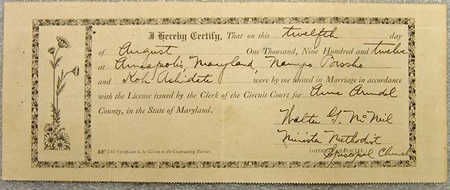 I Hereby Certify, That on this twelfth day
of August One Thousand, Nine Hundred and twelve
at Annapolis, Maryland, Nampo
and Koh Ashidate were by me united in Marriage in accordance
with the License issued by the Clerk of the Circuit Court for Anne Arundel
County, in the State of Maryland.
Walter G. McNeil
Minister Methodist
Episcopal Church
This Certificate to be Given to the Contracting Parties.